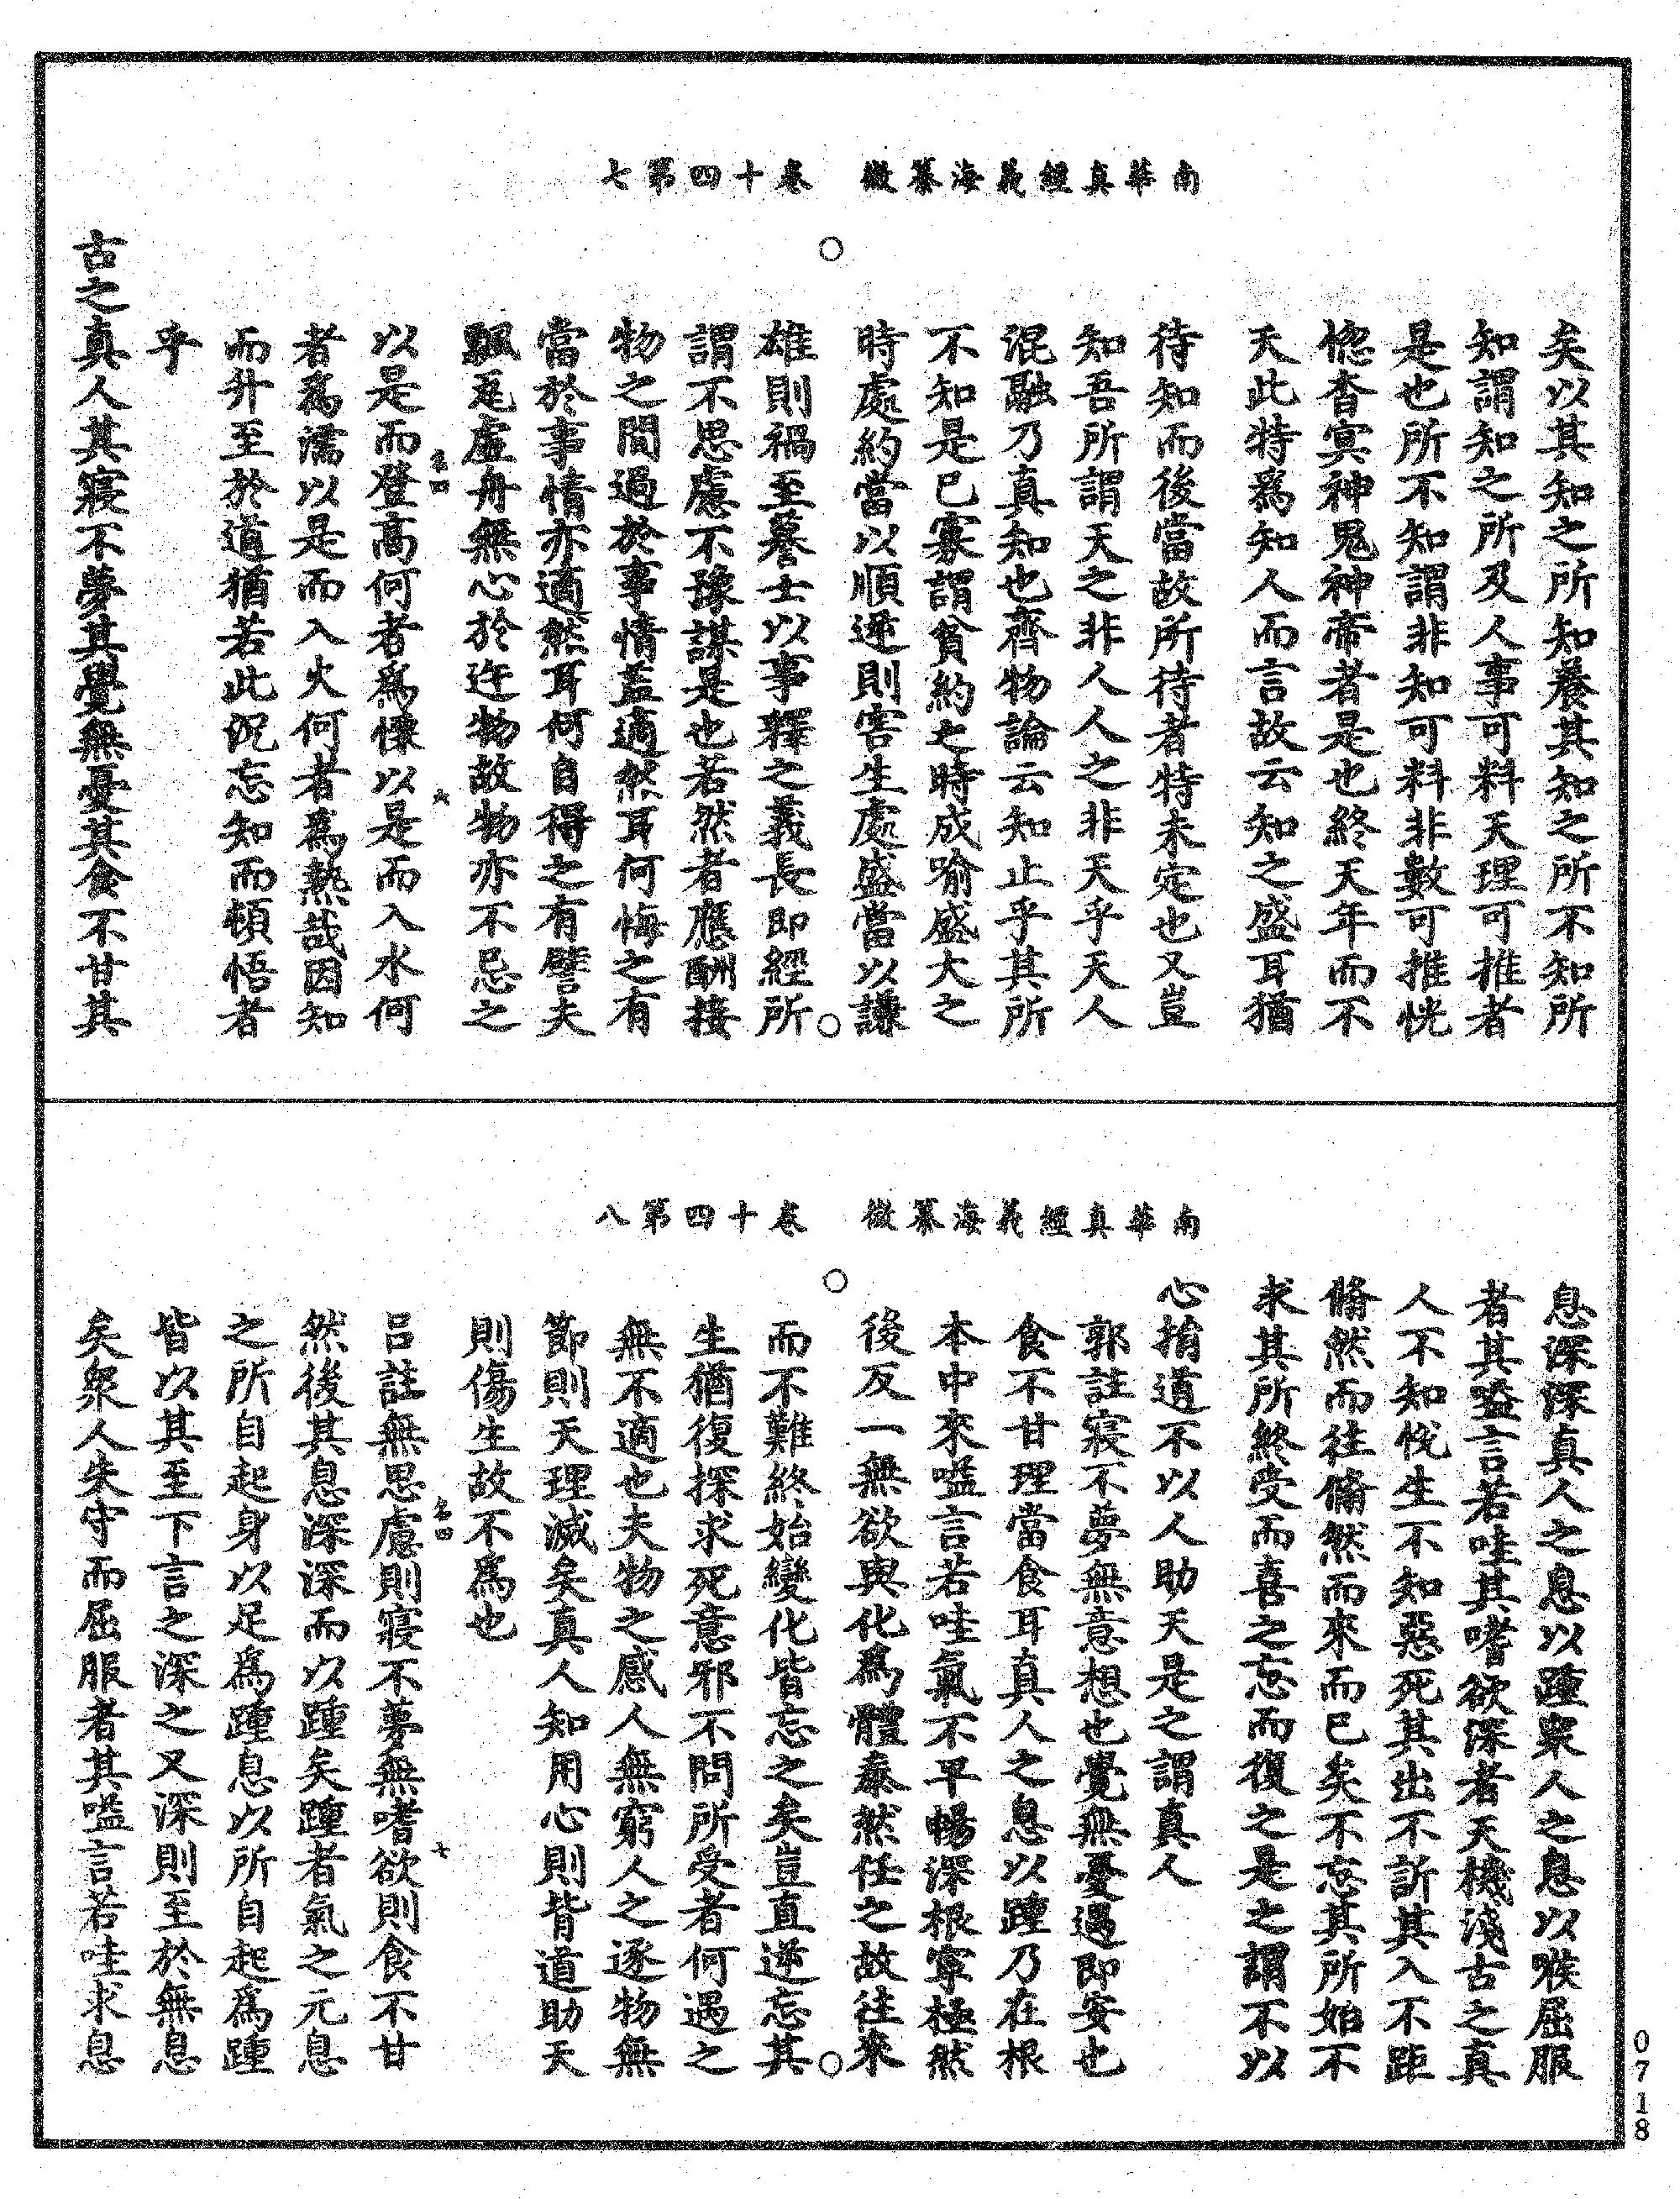 南華真經義海纂微　卷十四第七
矣以其知之所知養其知之所不知所
知謂知之所及人事可料天理可推者
是也所不知謂非知可料非數可推恍
惚杳冥神鬼神帝者是也終天年而不
天此特爲知人而言故云知之盛耳猶
待知而後當故所待者特未定也又豈
知吾所謂天之非人人之非天乎天人
混融乃真知也齊物論云知止乎其所
不知是已寡謂貧約之時成喻盛大之
時處約當以順逆則害生處盛當以謙
雄則禍至謩士以事釋之義長即經所
謂不思慮不豫謀是也若然者應酬接
物之間過於事情盖適然耳何悔之有
當於事情亦適然耳何自得之有譬夫
飄瓦虛舟無心於迕物故物亦不忌之
以是而登高何者爲慄以是而入水何
者爲濡以是而入火何者爲熱哉因知
而升至於道猶若此況忘知而頓悟者
乎
古之真人其寢不夢其覺無憂其食不甘其
南華真經義海纂微　卷十四第八
息深深真人之息以踵衆人之息以喉屈服
者其嗌言若哇其嗜欲深者天機淺古之真
人不知悅生不知惡死其出不訢其入不距
翛然而往翛然而來而已矣不忘其所始不
求其所終受而喜之忘而復之是之謂不以
心揖道不以人助天是之謂真人
郭註寢不夢無意想也覺無憂遇即安也
食不甘理當食耳真人之息以踵乃在根
本中來嗌言若哇氣不平暢深根寧極然
後反一無欲與化爲體泰然任之故往來
而不難終始變化皆忘之矣豈直逆忘其
生猶復探求死意邪不問所受者何遇之
無不適也夫物之感人無窮人之逐物無
節則天理滅矣真人知用心則背道助天
則傷生故不爲也
呂註無思慮則寢不夢無嗜欲則食不甘
然後其息深深而以踵矣踵者氣之元息
之所自起身以足爲踵息以所自起爲踵
皆以其至下言之深之又深則至於無息
矣衆人失守而屈服者其嗌言若哇求息
0718